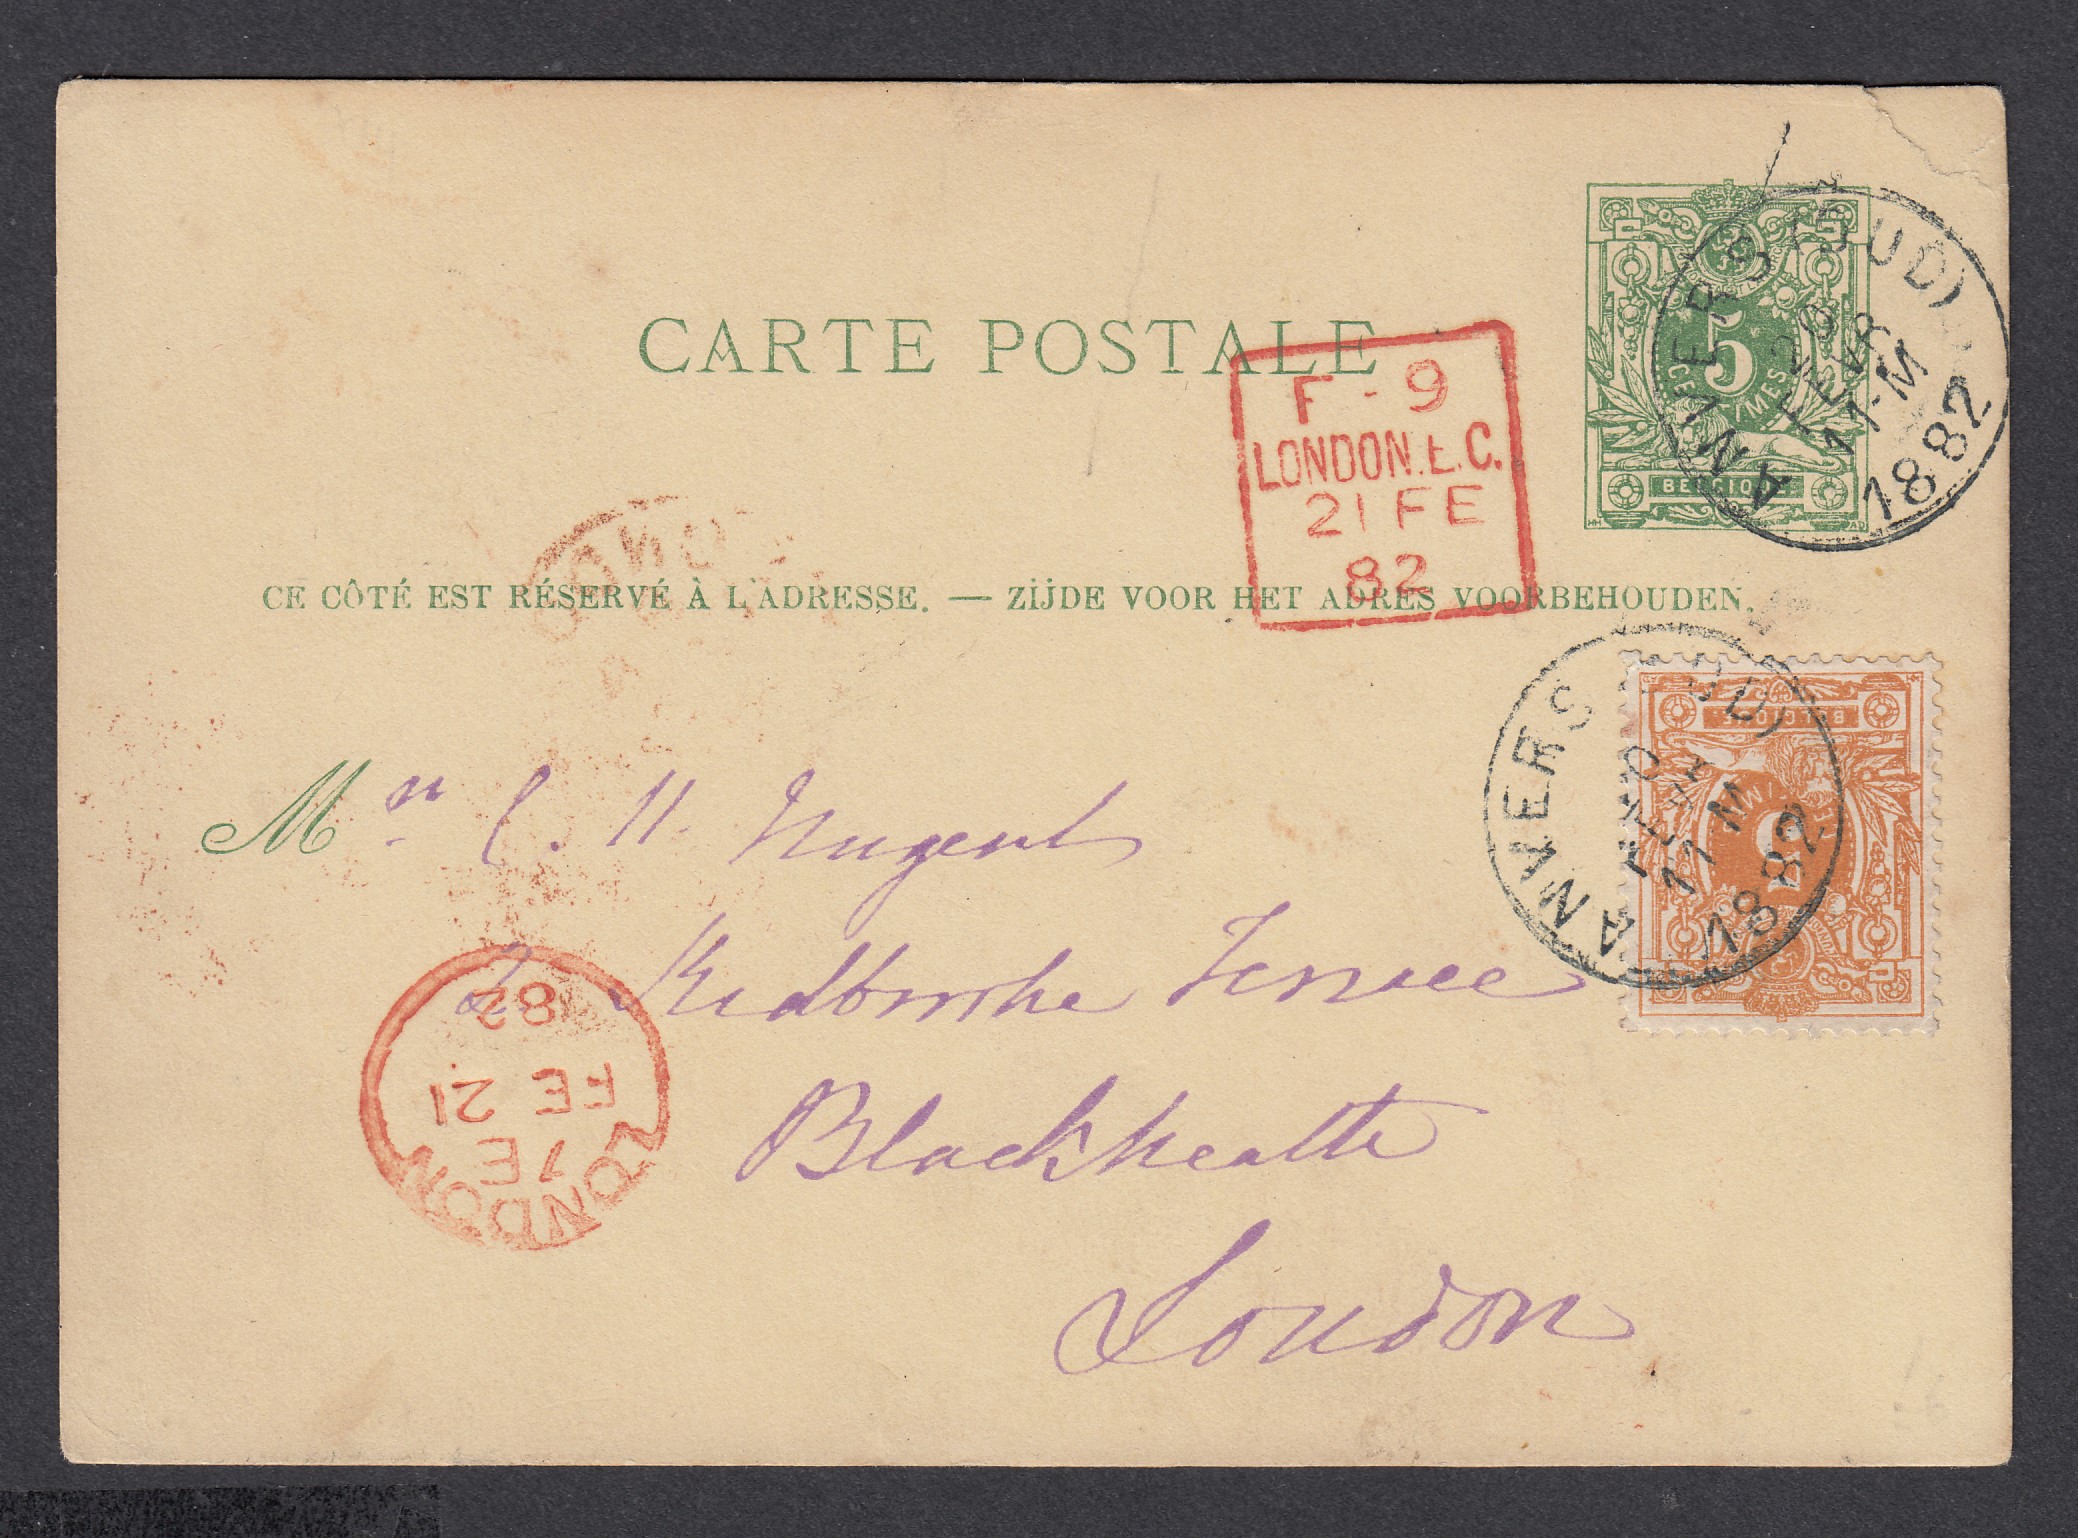 CARTE POSTALE
5
CENTIMES
BELGIQUE
ANVERS (SUD)
20
FEVR
11-M
1882
F-9
LONDON.E.C.
21 FE
82
CE CÔTÉ EST RÉSERVÉ À L'ADRESSE. — ZIJDE VOOR HET ADRES VOORBEHOUDEN.
BELGIQUE
2
ANVERS (SUD)
11 M
1882
Mr C. H. Nugent
2 Kidbrooke Terrace
Blackheath
London
LONDON
7E
FE 21
82